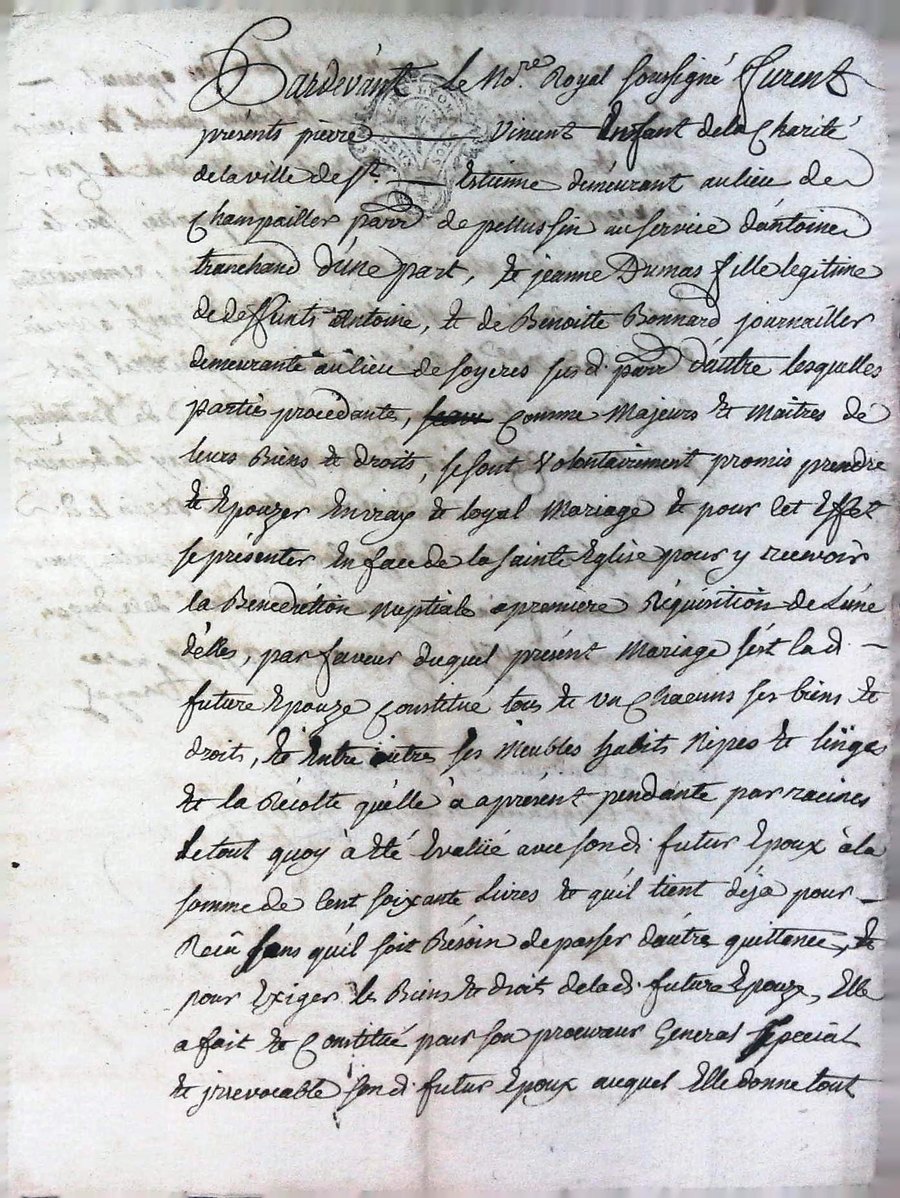 Pardevant le No.re Royal soussigné furent
présents pierre Vincent Enfant de la Charité
de la ville de St. Estienne demeurant au lieu de
Champailler parr de pellussin au service d'antoine
tranchand d'une part, & jeanne Dumas fille legitime
de deffunts Antoine, & de Benoitte Bonnard journailler
demeurante au lieu de soyeres susd. parr d'autre lesquelles
partie procedante, comme Majeurs & Maitres de
leurs Biens & droits, se sont volontairement promis prendre
& Epouzer En vray & loyal Mariage & pour cet Effet
se présenter En face de la sainte Eglise pour y recevoir
la Benediction Nuptiale a premiere Réquisition de L'une
d'elles, par faveur duquel présent Mariage s'est lad. -
future Epouze Constitué tous & un Chacuns ses biens &
droits, & Entre autres ses Meubles habits Nipes & linges
& la Récolte qu'elle a a présent pendante par racines
Le tout quoy à Eté Evalüé avec sond. futur Epoux à la
somme de Cent soixante Livres & qu'il tient déja pour -
Reçû sans qu'il soit Bésoin de passer d'autre quittance, &
pour Exiger les Biens & droit de lad. future Epouze, Elle
a fait & Constitué pour son procureur General special
& jrrevocable sond. futur Epoux auquel Elle donne tout